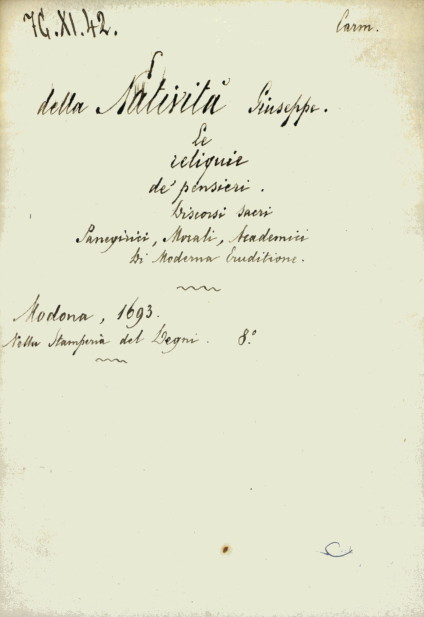 7G.XI.42.
Carm.
della Natività Giuseppe.
Le
reliquie
de' pensieri.
Discorsi sacri
Panegirici, Morali, Academici
Di Moderna Eruditione.
Modona, 1693.
Nella Stamperia del Degni. 8.°